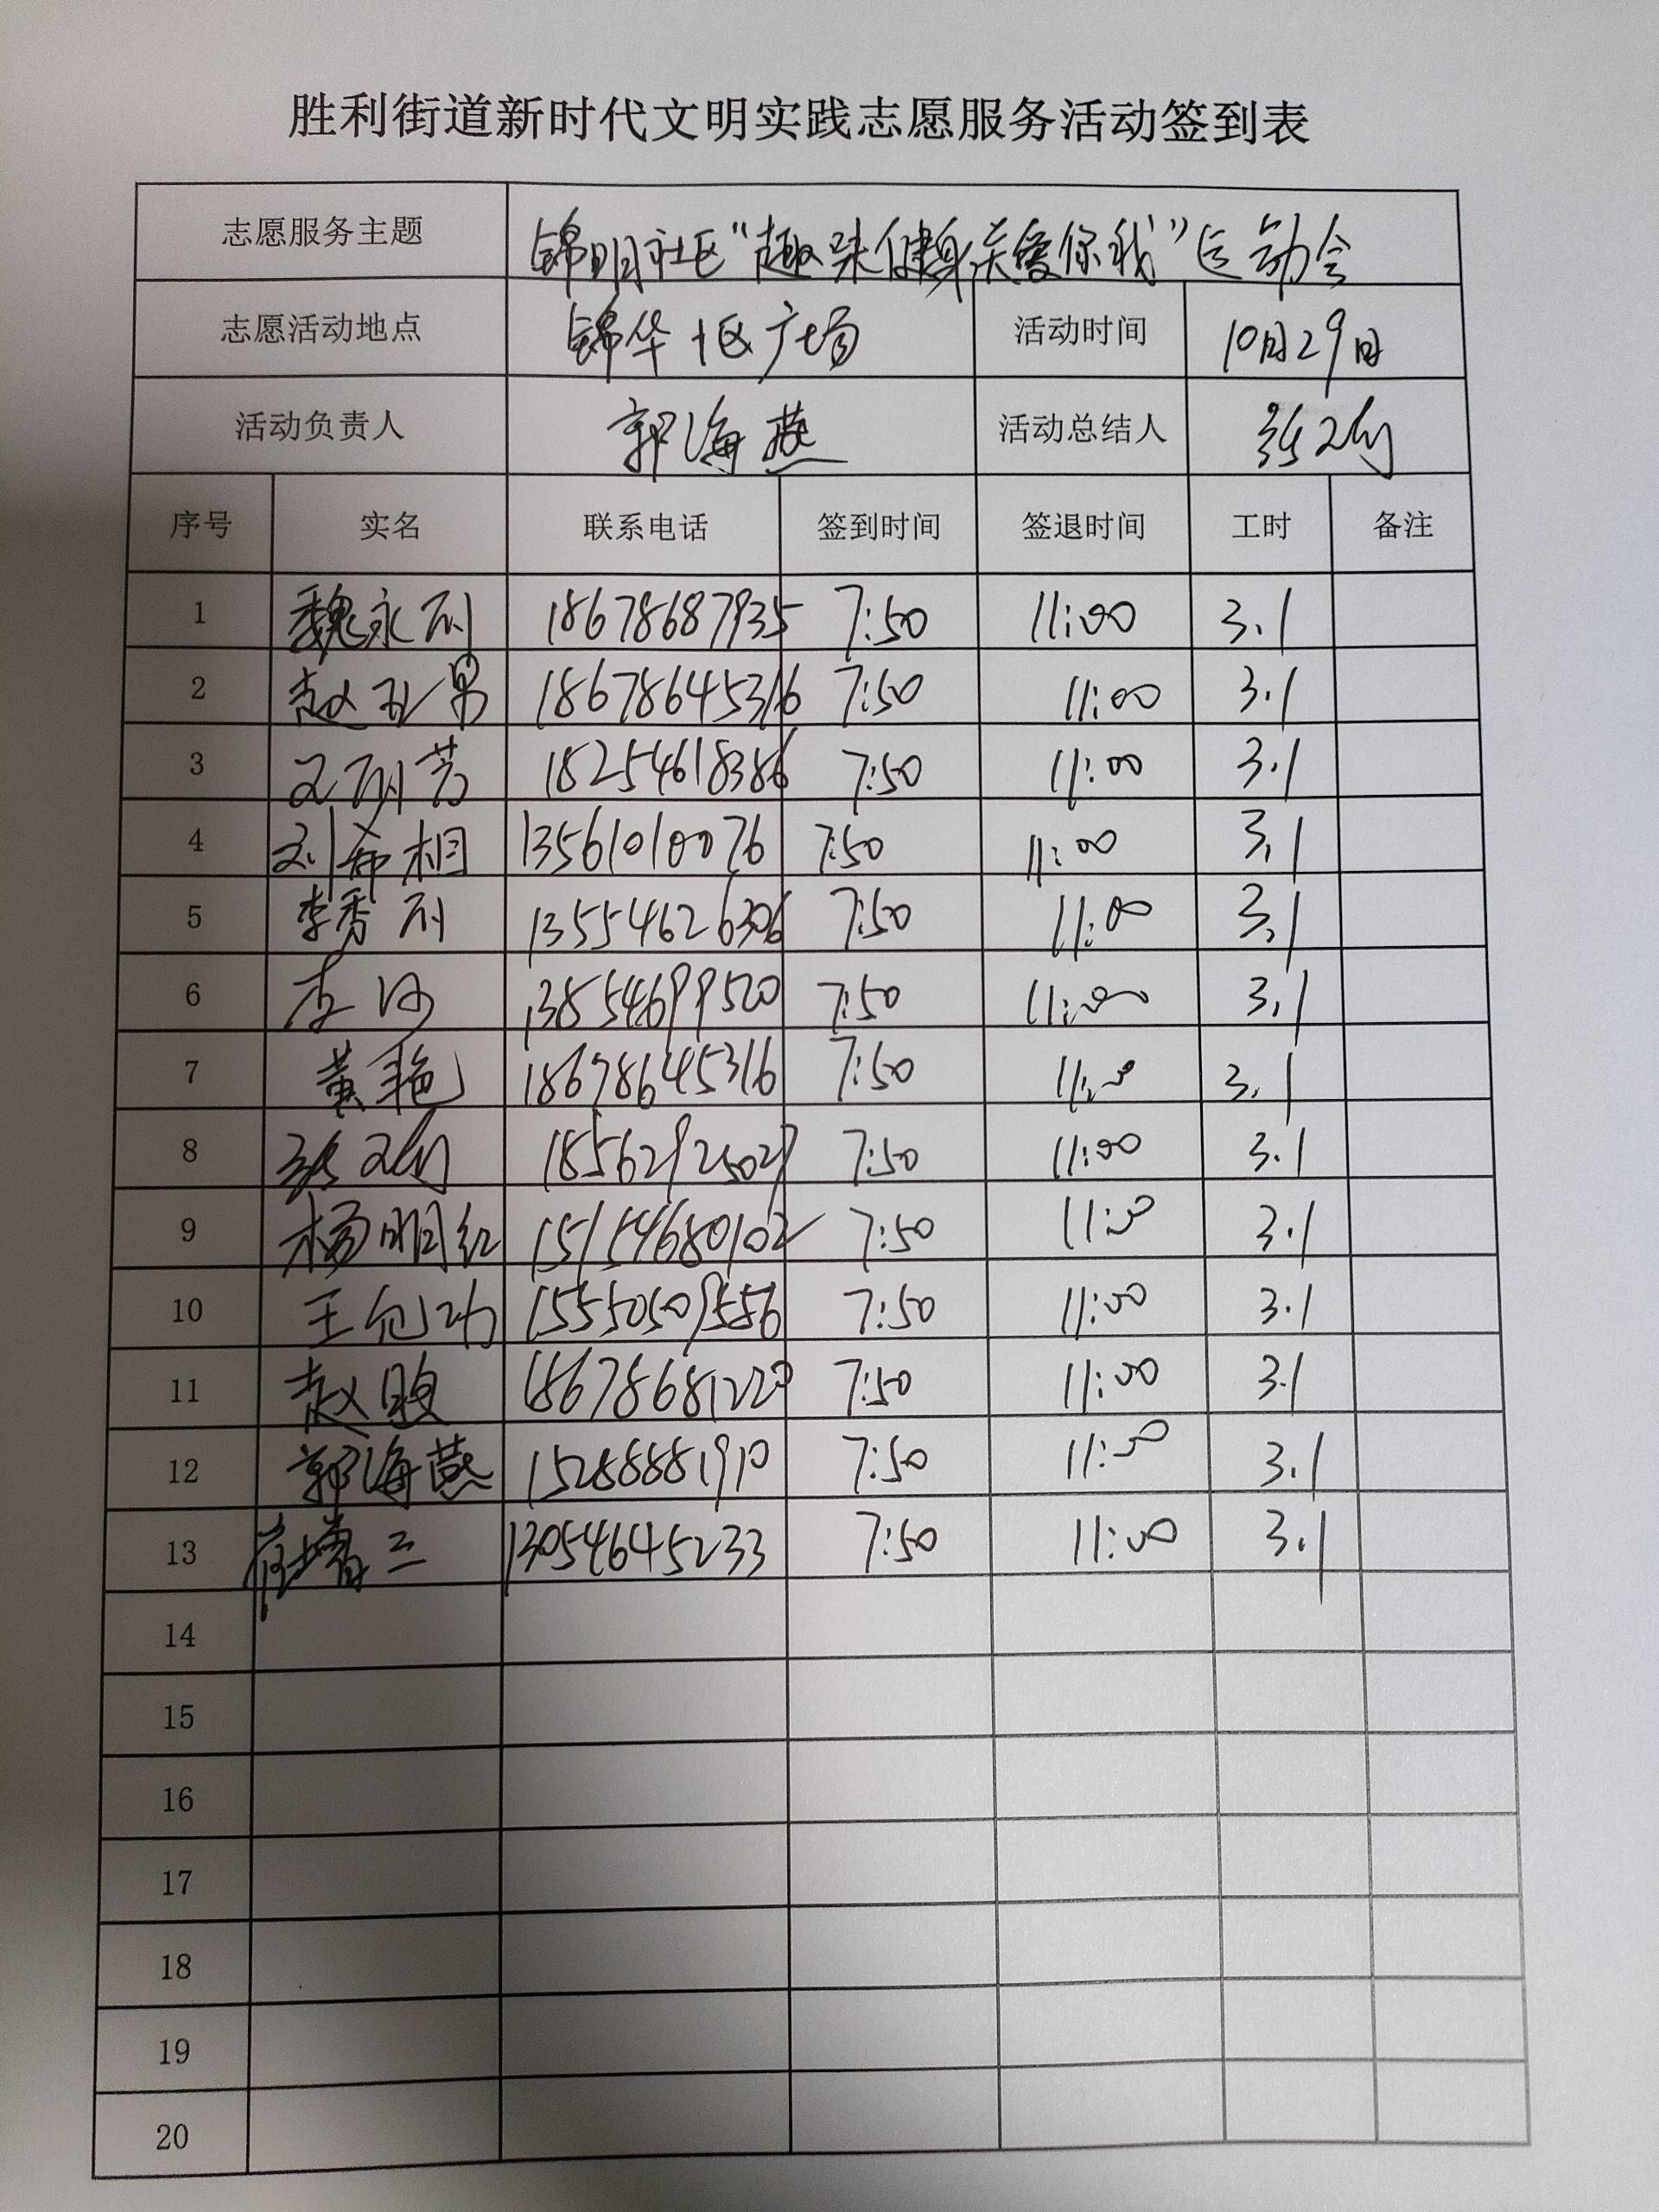 胜利街道新时代文明实践志愿服务活动签到表
志愿服务主题 锦明社区“趣味健身关爱你我”运动会
志愿活动地点 锦华十区广场 活动时间 10月29日
活动负责人 郭海燕 活动总结人
序号 实名 联系电话 签到时间 签退时间 工时 备注
1 魏永利 18678687935 7:50 11:00 3.1
2 赵 男 18678645316 7:50 11:00 3.1
3 18254618386 7:50 11:00 3.1
4 刘希相 13561010076 7:50 11:00 3.1
5 李秀丽 13554626306 7:50 11:00 3.1
6 李 13854699520 7:50 11:00 3.1
7 黄艳 18678645316 7:50 11:00 3.1
8 18562925029 7:50 11:00 3.1
9 杨明红 15154680102 7:50 11:00 3.1
10 王 15550509556 7:50 11:00 3.1
11 赵 18678681220 7:50 11:00 3.1
12 郭海燕 15288881910 7:50 11:00 3.1
13 13054645233 7:50 11:00 3.1
14
15
16
17
18
19
20